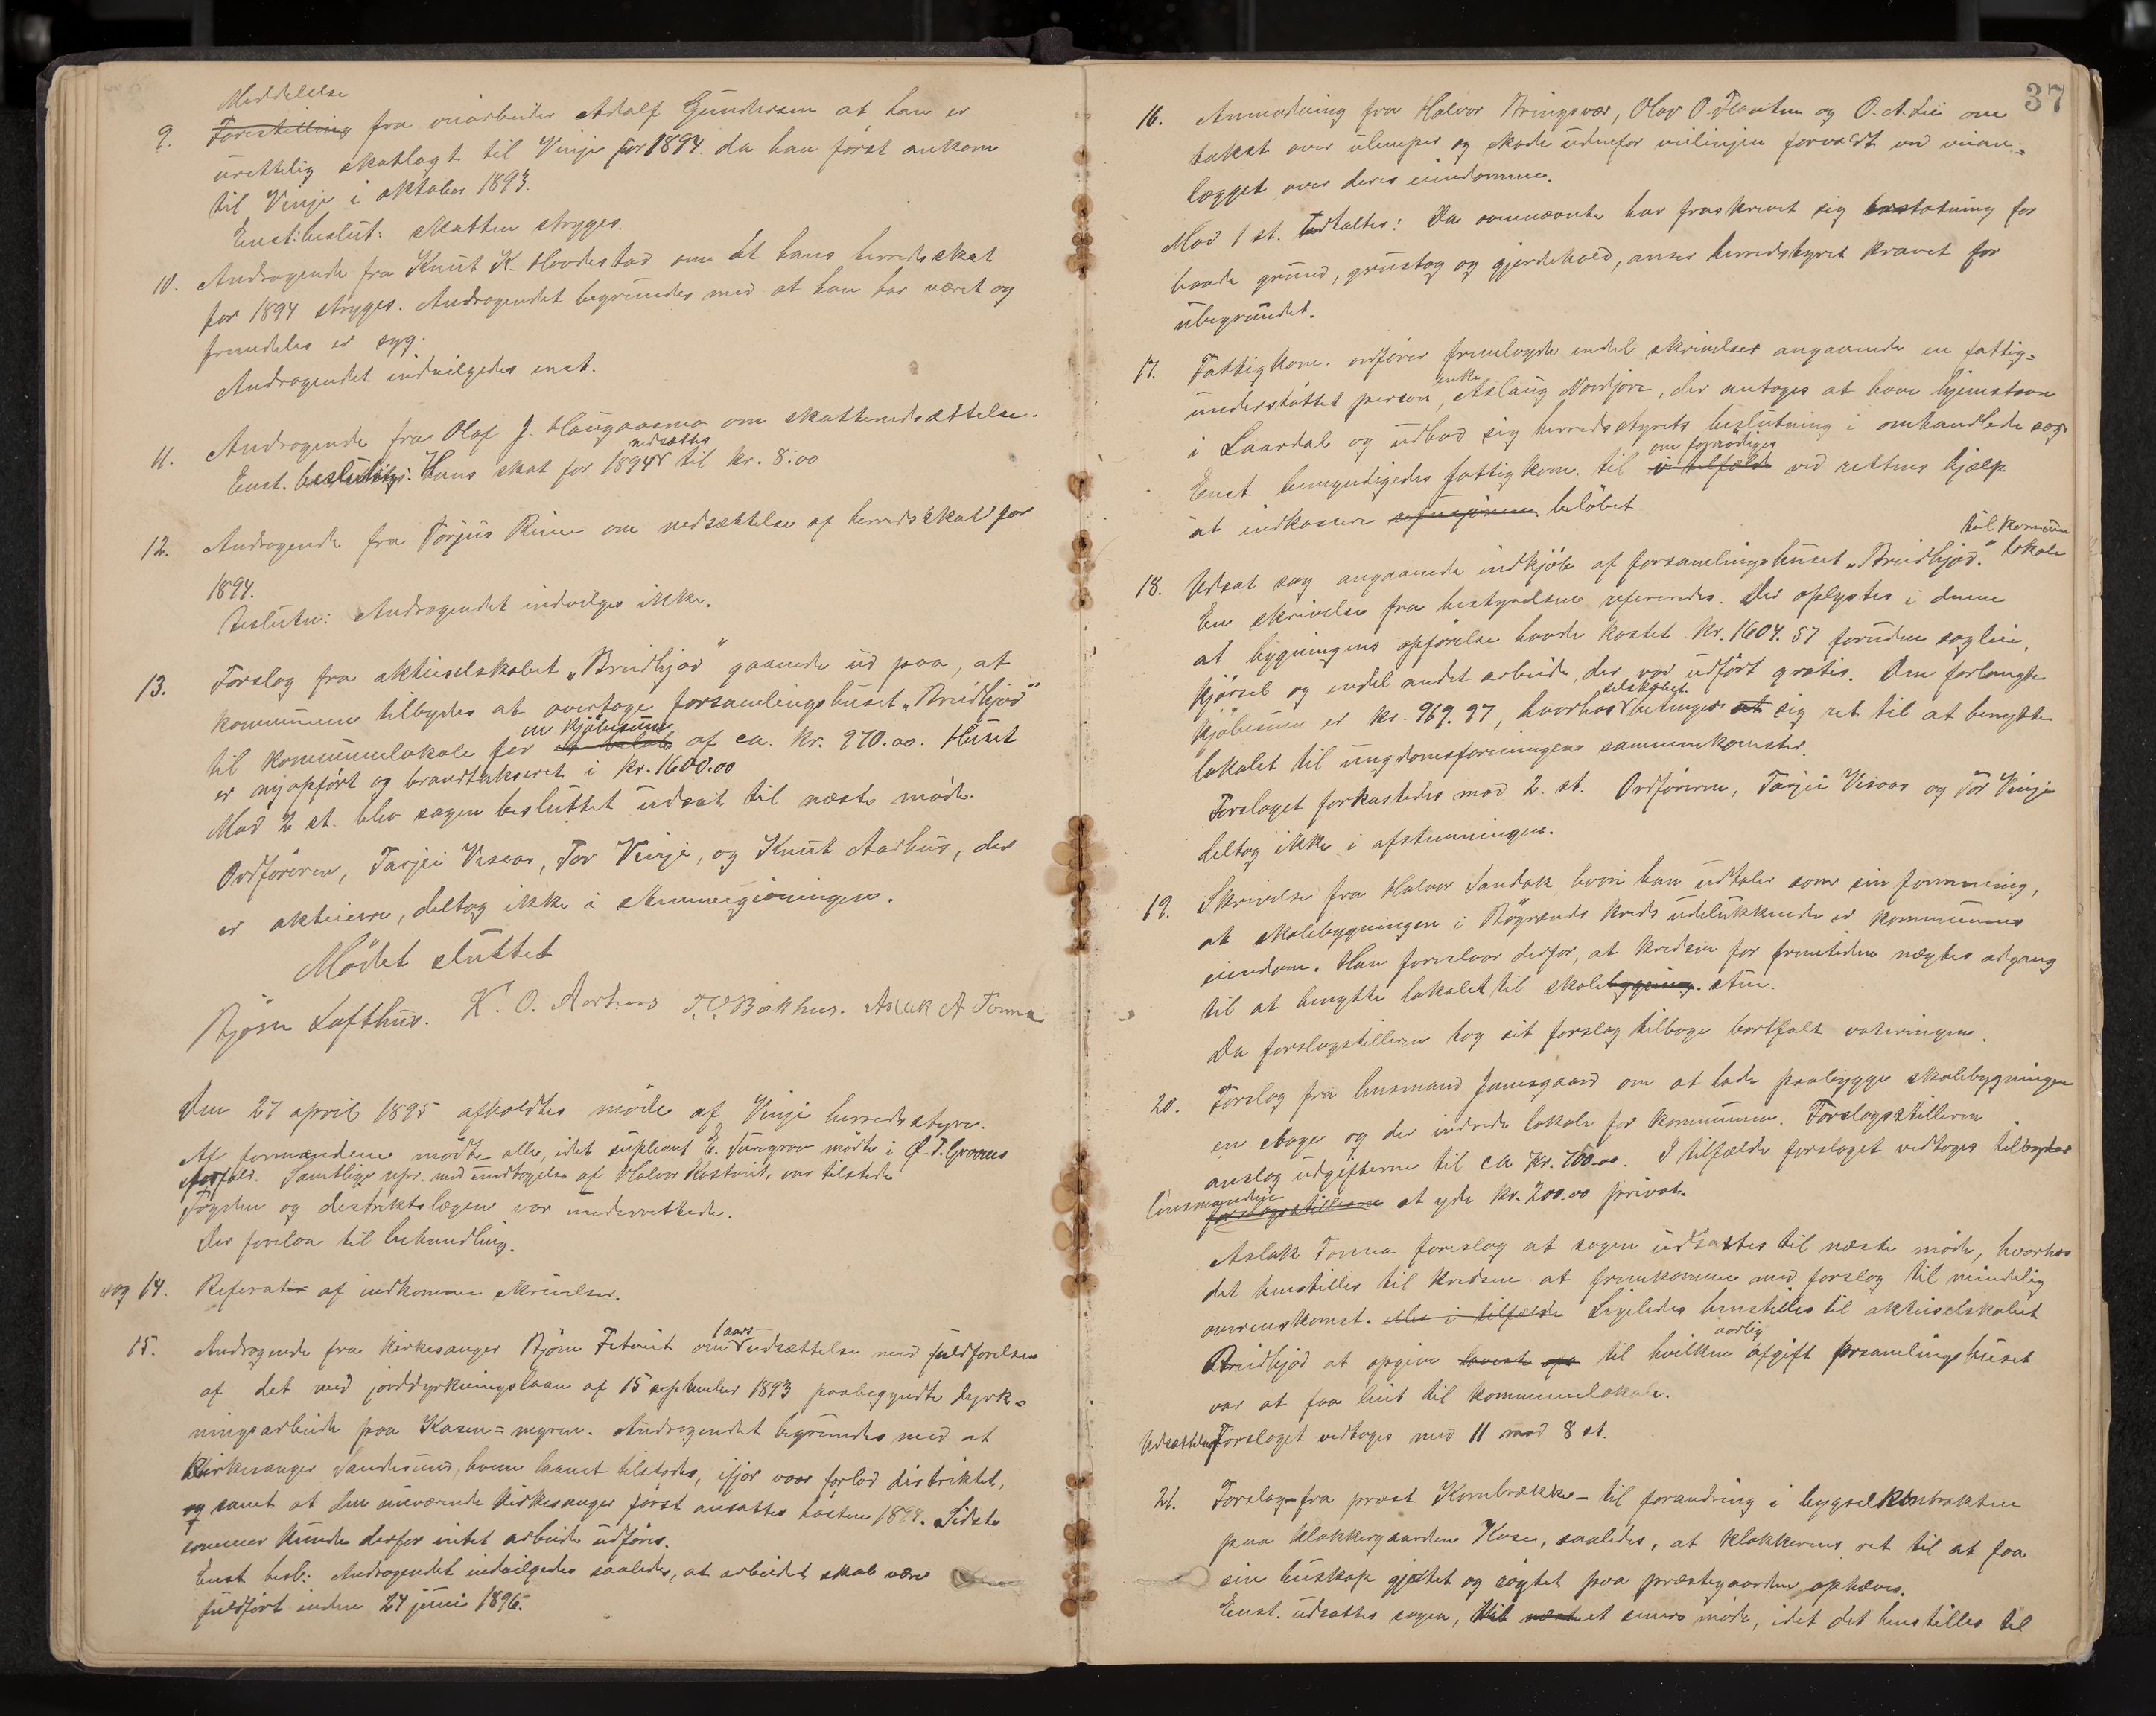 Meddelelse
9. Forestilling fra veiarbeider Adolf Gundersen at han er
urettelig skatlagt til Vinje for 1894 da han först ankom
til Vinje i oktober 1893.
Enst: beslut: skatten stryges.
10. Andragende fra Knut K. Hovdestad om at hans herredsskat
for 1894 stryges. Andragendet begrundes med at han har været og
fremdeles er syg.
Andragendet indvilgedes enst.
11. Andragende fra Olaf J. Haugaasmo om skattenedsættelse.
nedsættes
Enst. besluttedes: Hans skat for 1894 til kr. 8.00
12. Andragende fra Torjus Rime om nedsættelse af herredsskat for
1894.
Beslutn: Andragendet indvilges ikke.
13. Forslag fra aktieselskabet „Breidhjod" gaaende ud paa, at
kommunen tilbydes at overtage forsamlingshuset „Breidhjod"
en kjöbesum
til kommunelokale for et belöb af ca. kr. 970.00. Huset
er nyopfört og brandtakseret i kr. 1600.00
Mod 2 st. blev sagen besluttet udsat til næste möde.
Ordföreren, Tarjei Visaas, Tor Vinje, og Knut Aarhus, der
er aktieiere, deltog ikke i stemmegivningen.
Mödet sluttet
Björn Lofthus. K. O. Aarhus T. O. Bækhus. Aslak A Tonna
Den 27 april 1895 afholdtes möde af Vinje herredsstyre.
Af formændene mödte alle, idet supleant E. Jungrav mödte i Ø. T. Groven's
forfald. Samtlige repr. med undtagelse af Halvor Kostveit, var tilstede
Fogden og distriktslægen var underrettede.
Der forelaa til behandling.
sag 14. Referater af indkomne skrivelser.
1 aars
15. Andragende fra kirkesanger Björn Fetveit om udsættelse med fuldförelsen
af det med jorddyrkningslaan af 15 september 1893 paabegyndte dyrk=
ningsarbeide paa Kosen=myren. Andragendet begrundes med at
kirkesanger Sandesund, hvem laanet tilstodes, ifjor vaar forlod distriktet,
og samt at den nuværende kirkesanger först ansattes hösten 1894. Sidste
sommer kunde derfor intet arbeide udföres.
Enst besl: Andragendet indvilgedes saaledes, at arbeidet skal være
fuldfört inden 24 juni 1896.
37
16. Anmodning fra Halvor Bringsvær, Olav O. Flaaten og O. A. Lie om
takst over ulemper og skade udenfor veilinjen forvoldt ved veian=
lægget over deres eiendomme.
Mod 1 st. udtaltes: Da ovennævnte har fraskrevet sig erstatning for
baade grund, grustag og gjerdehold, anser herredsstyret kravet for
ubegrundet.
17. Fattigkom. ordförer fremlagde endel skrivelser angaaende en fattig=
enke
understöttet person, Aslaug Nordjore, der antages at have hjemstavn
i Laardal og udbad sig herredsstyrets beslutning i omhandlede sag
om fornödiges
Enst. bemyndigedes fattigkom. til i tilfælde ved rettens hjælp
at indkassere refusjonen belöbet
til kommune
18. Udsat sag angaaende indkjöb af forsamlingshuset „Breidhjod." lokale
En skrivelse fra bestyrelsen refereredes. Der oplystes i denne
at bygningens opförelse havde kostet kr. 1604.57 foruden sagleie,
kjörsel og endel andet arbeide, der var udfört gratis. Den forlangte
selskabet
kjöbesum er kr. 969.97, hvorhos betinges at sig ret til at benytte
lokalet til ungdomsforeningens sammenkomster.
Forslaget forkastedes mod 2. st. Ordföreren, Tarjei Visaas og Tor Vinje
deltog ikke i afstemningen.
19. Skrivelse fra Halvor Sandok hvori han udtaler som sin formening,
at skolebygningen i Bögrænds kreds udelukkende er kommunens
eiendom. Han foreslaar derfor, at kredsen for fremtiden nægtes adgang
til at benytte lokalet til skolebygning. stue.
Da forslagstilleren tog sit forslag tilbage bortfalt voteringen.
20. Forslag fra lensmand Jamsgaard om at lade paabygge skolebygningen
en etage og der indrede lokale for kommunen. Forslagsstilleren
anslog udgifterne til ca kr. 700.00. I tilfælde forslaget vedtages tilbydes
lensmanden
forslagsstilleren at yde kr. 200.00 privat.
Aslak Tonna foreslog at sagen udsættes til næste möde, hvorhos
det henstilles til kredsen at fremkomme med forslag til mindelig
overenskomst. eller i tilfælde Ligeledes henstilles til aktieselskabet
aarlig
Breidhjod at opgive laveste til hvilken afgift forsamlingshuset
var at faa leiet til kommunelokale.
Udsættelsesforslaget vedtoges med 11 mod 8 st.
21. Forslag - fra præst Kornbrække - til forandring i bygselkontrakten
paa klokkergaarden Kose, saaledes, at klokkerens ret til at faa
sin buskap gjætet og rögtet paa præstegaarden ophæves.
Enst. udsattes sagen, til næste et senere möde, idet det henstilles til